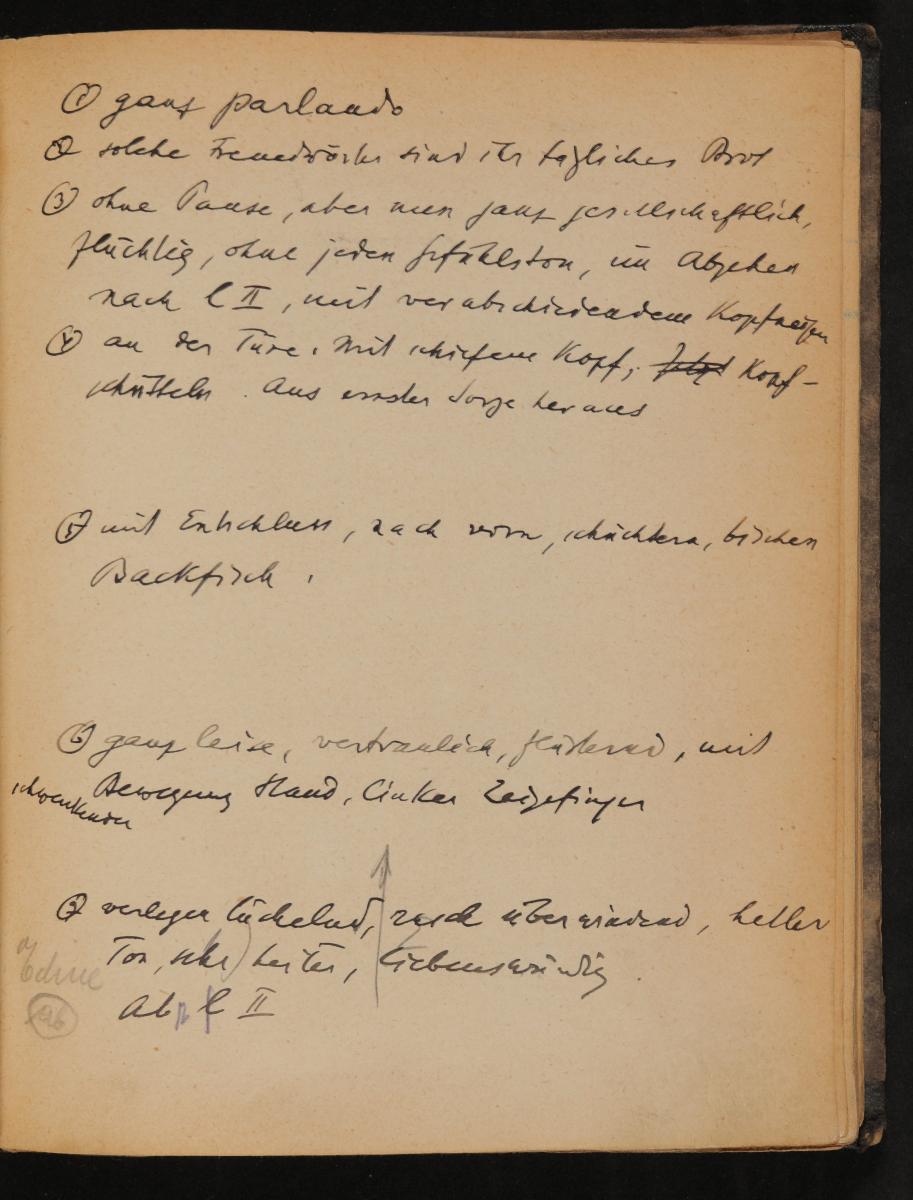 ① ganz parlando
② solche Fremdwörter sind ihr tägliches Brot
③ ohne Pause, aber nun ganz gesellschaftlich,
flüchtig, ohne jeden Gefühlston, im Abgehen
nach l II, mit verabschiedendem Kopfneigen
④ an der Türe. Mit schiefem Kopf, Kopf-
schütteln. Aus erster Sorge heraus
⑤ mit Entschluss, nach vorn, schüchtern, bischen
Backfisch.
⑥ ganz leise, vertraulich, flüsternd, mit
schwenkender Bewegung Hand, linker Zeigefinger
⑦ verlegen lächelnd, rasch überwindend, heller
Ton, sehr heiter, liebenswürdig.
ab l II
ab